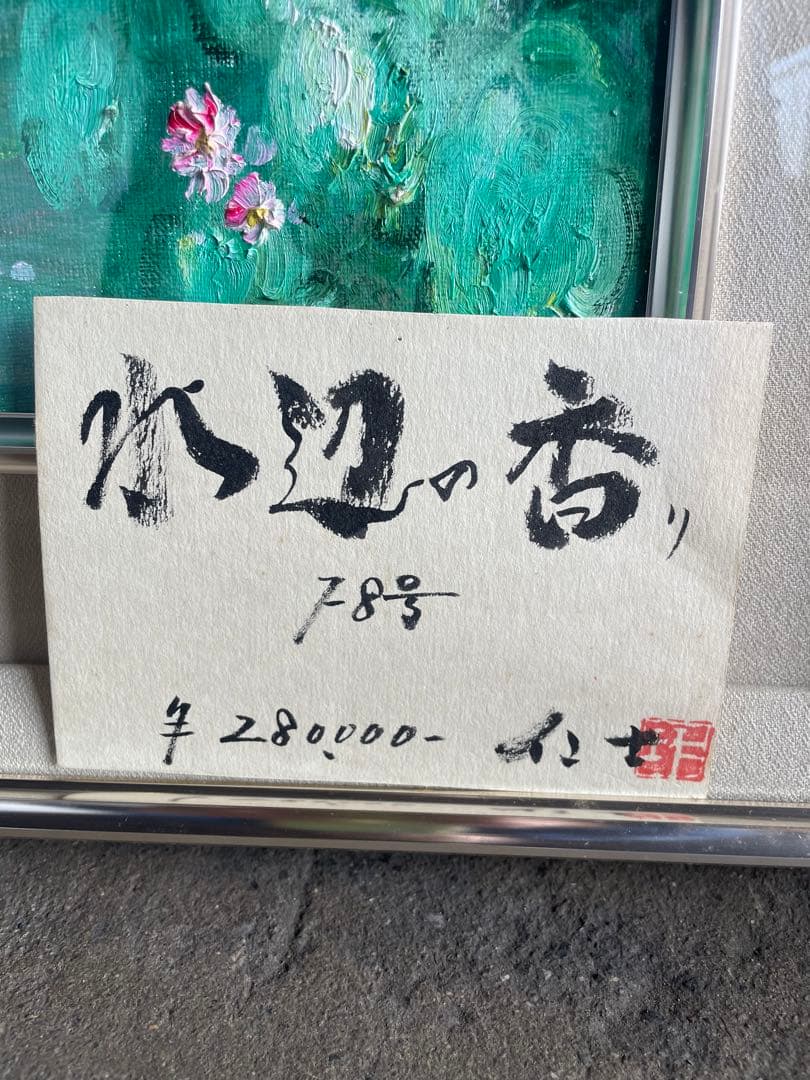 水辺の香り
F8号
¥280,000-
仁士